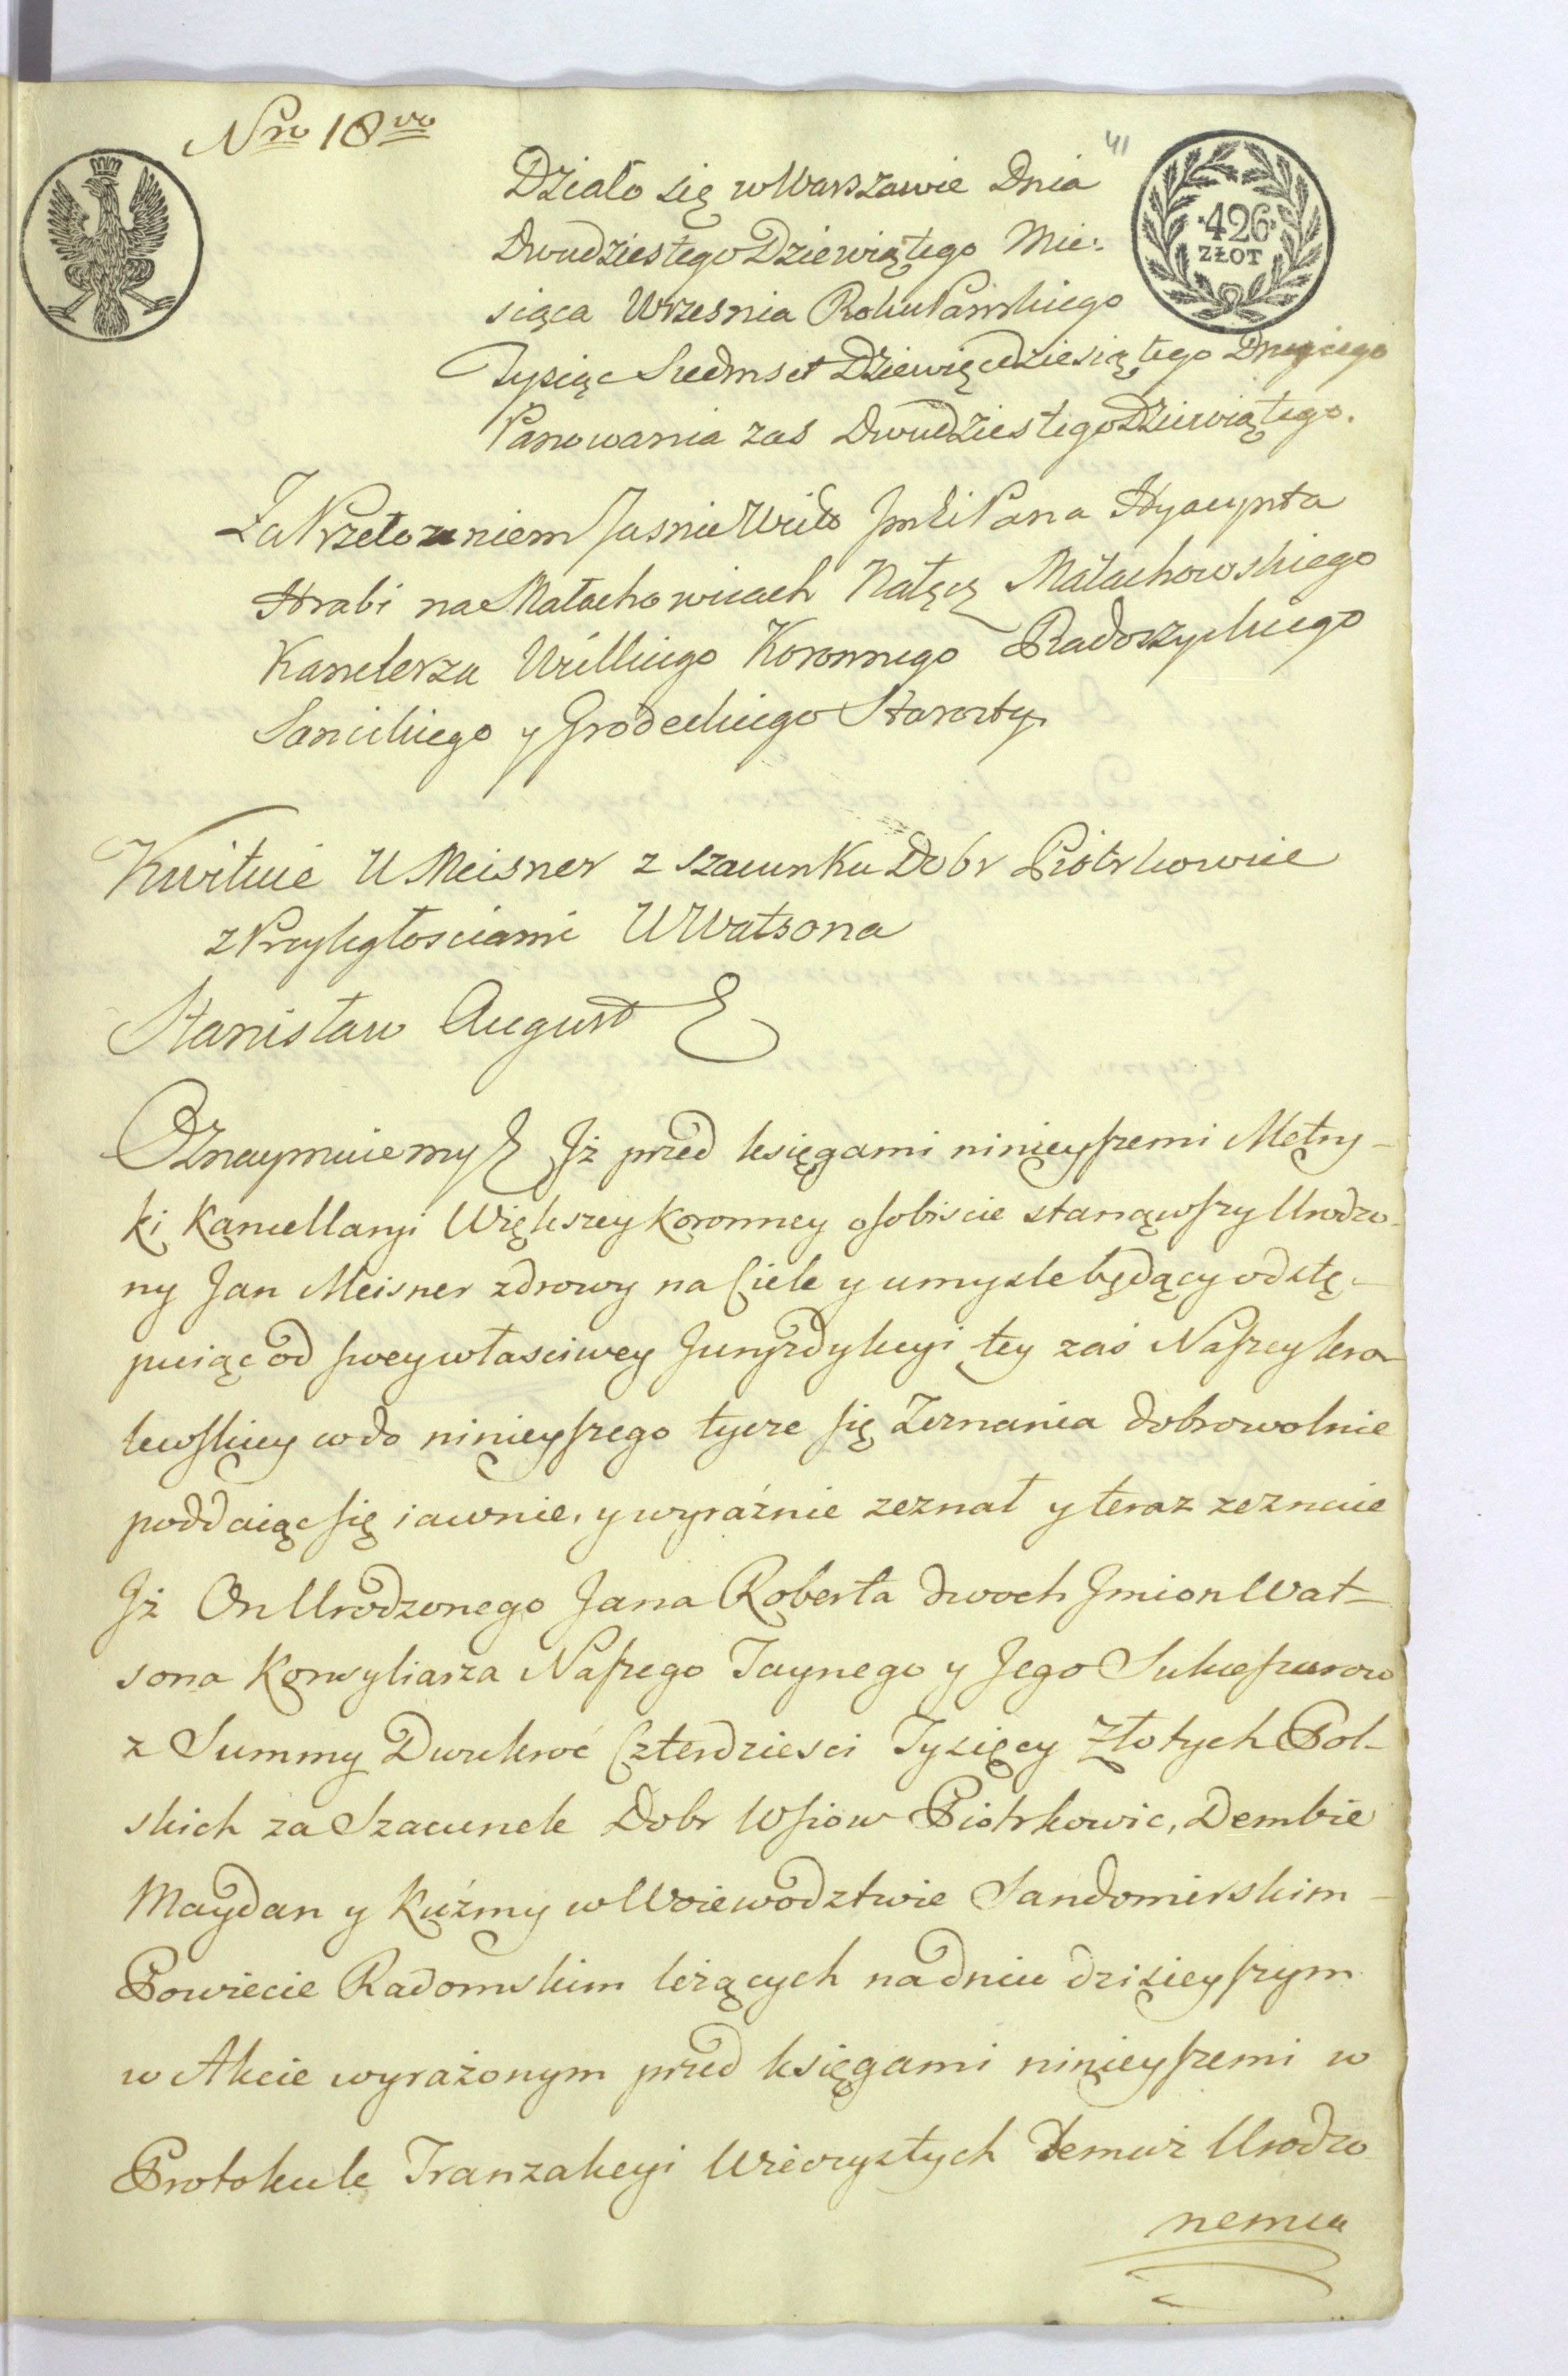 Nro 18vo
41
·426·
ZŁOT
Działo się w Warszawie Dnia
Dwudziestego Dziewiątego Mie:
siąca Wrzesnia Roku Pańskiego
Tysiąc Siedmset Dziewięćdziesiątego Drugiego
Panowania zas Dwudziestego Dziewiątego.
Za Przełożeniem Jasnie Wiel. Jmści Pana Hyacynta
Hrabi na Małachowicach Nałęcz Małachowskiego
Kanclerza Wielkiego Koronnego Radoszyckiego
Sanickiego y Grodeckiego Starosty
Kwituie U Meisner z szacunku Dobr Piotrkowice
z Przyległosciami U Watsona
Stanisław August
Oznaymuiemy Jż przed księgami ninieyszemi Metry-
ki Kancellaryi Większey Koronney osobiscie stanąwszy Urodzo-
ny Jan Meisner zdrowy na Ciele y umysle będący odstę-
puiąc od swey własciwey Juryzdykcyi tey zaś Naszey kro-
lewskiey co do ninieyszego tycze się Zeznania dobrowolnie
poddaiąc się iawnie, y wyraźnie zeznał y teraz zeznaie
Jż On Urodzonego Jana Roberta dwoch Jmion Wat-
sona Konsyliarza Naszego Taynego y Jego Sukcessorow
z Summy Dwukroć Czterdziesci Tysięcy Złotych Pol-
skich za Szacunek Dobr Wsiow Piotrkowic, Dembie
Maydan y Kuźmy w Woiewodztwie Sandomirskim-
Powiecie Radomskim leżących na dniu dzisieyszym
w Akcie wyrażonym przed księgami ninieyszemi w
Protokule Tranzakcyi Wieczystych temuż Urodzo
nemu